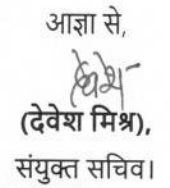 आज्ञा से,
देवेश
(देवेश मिश्र),
संयुक्त सचिव।